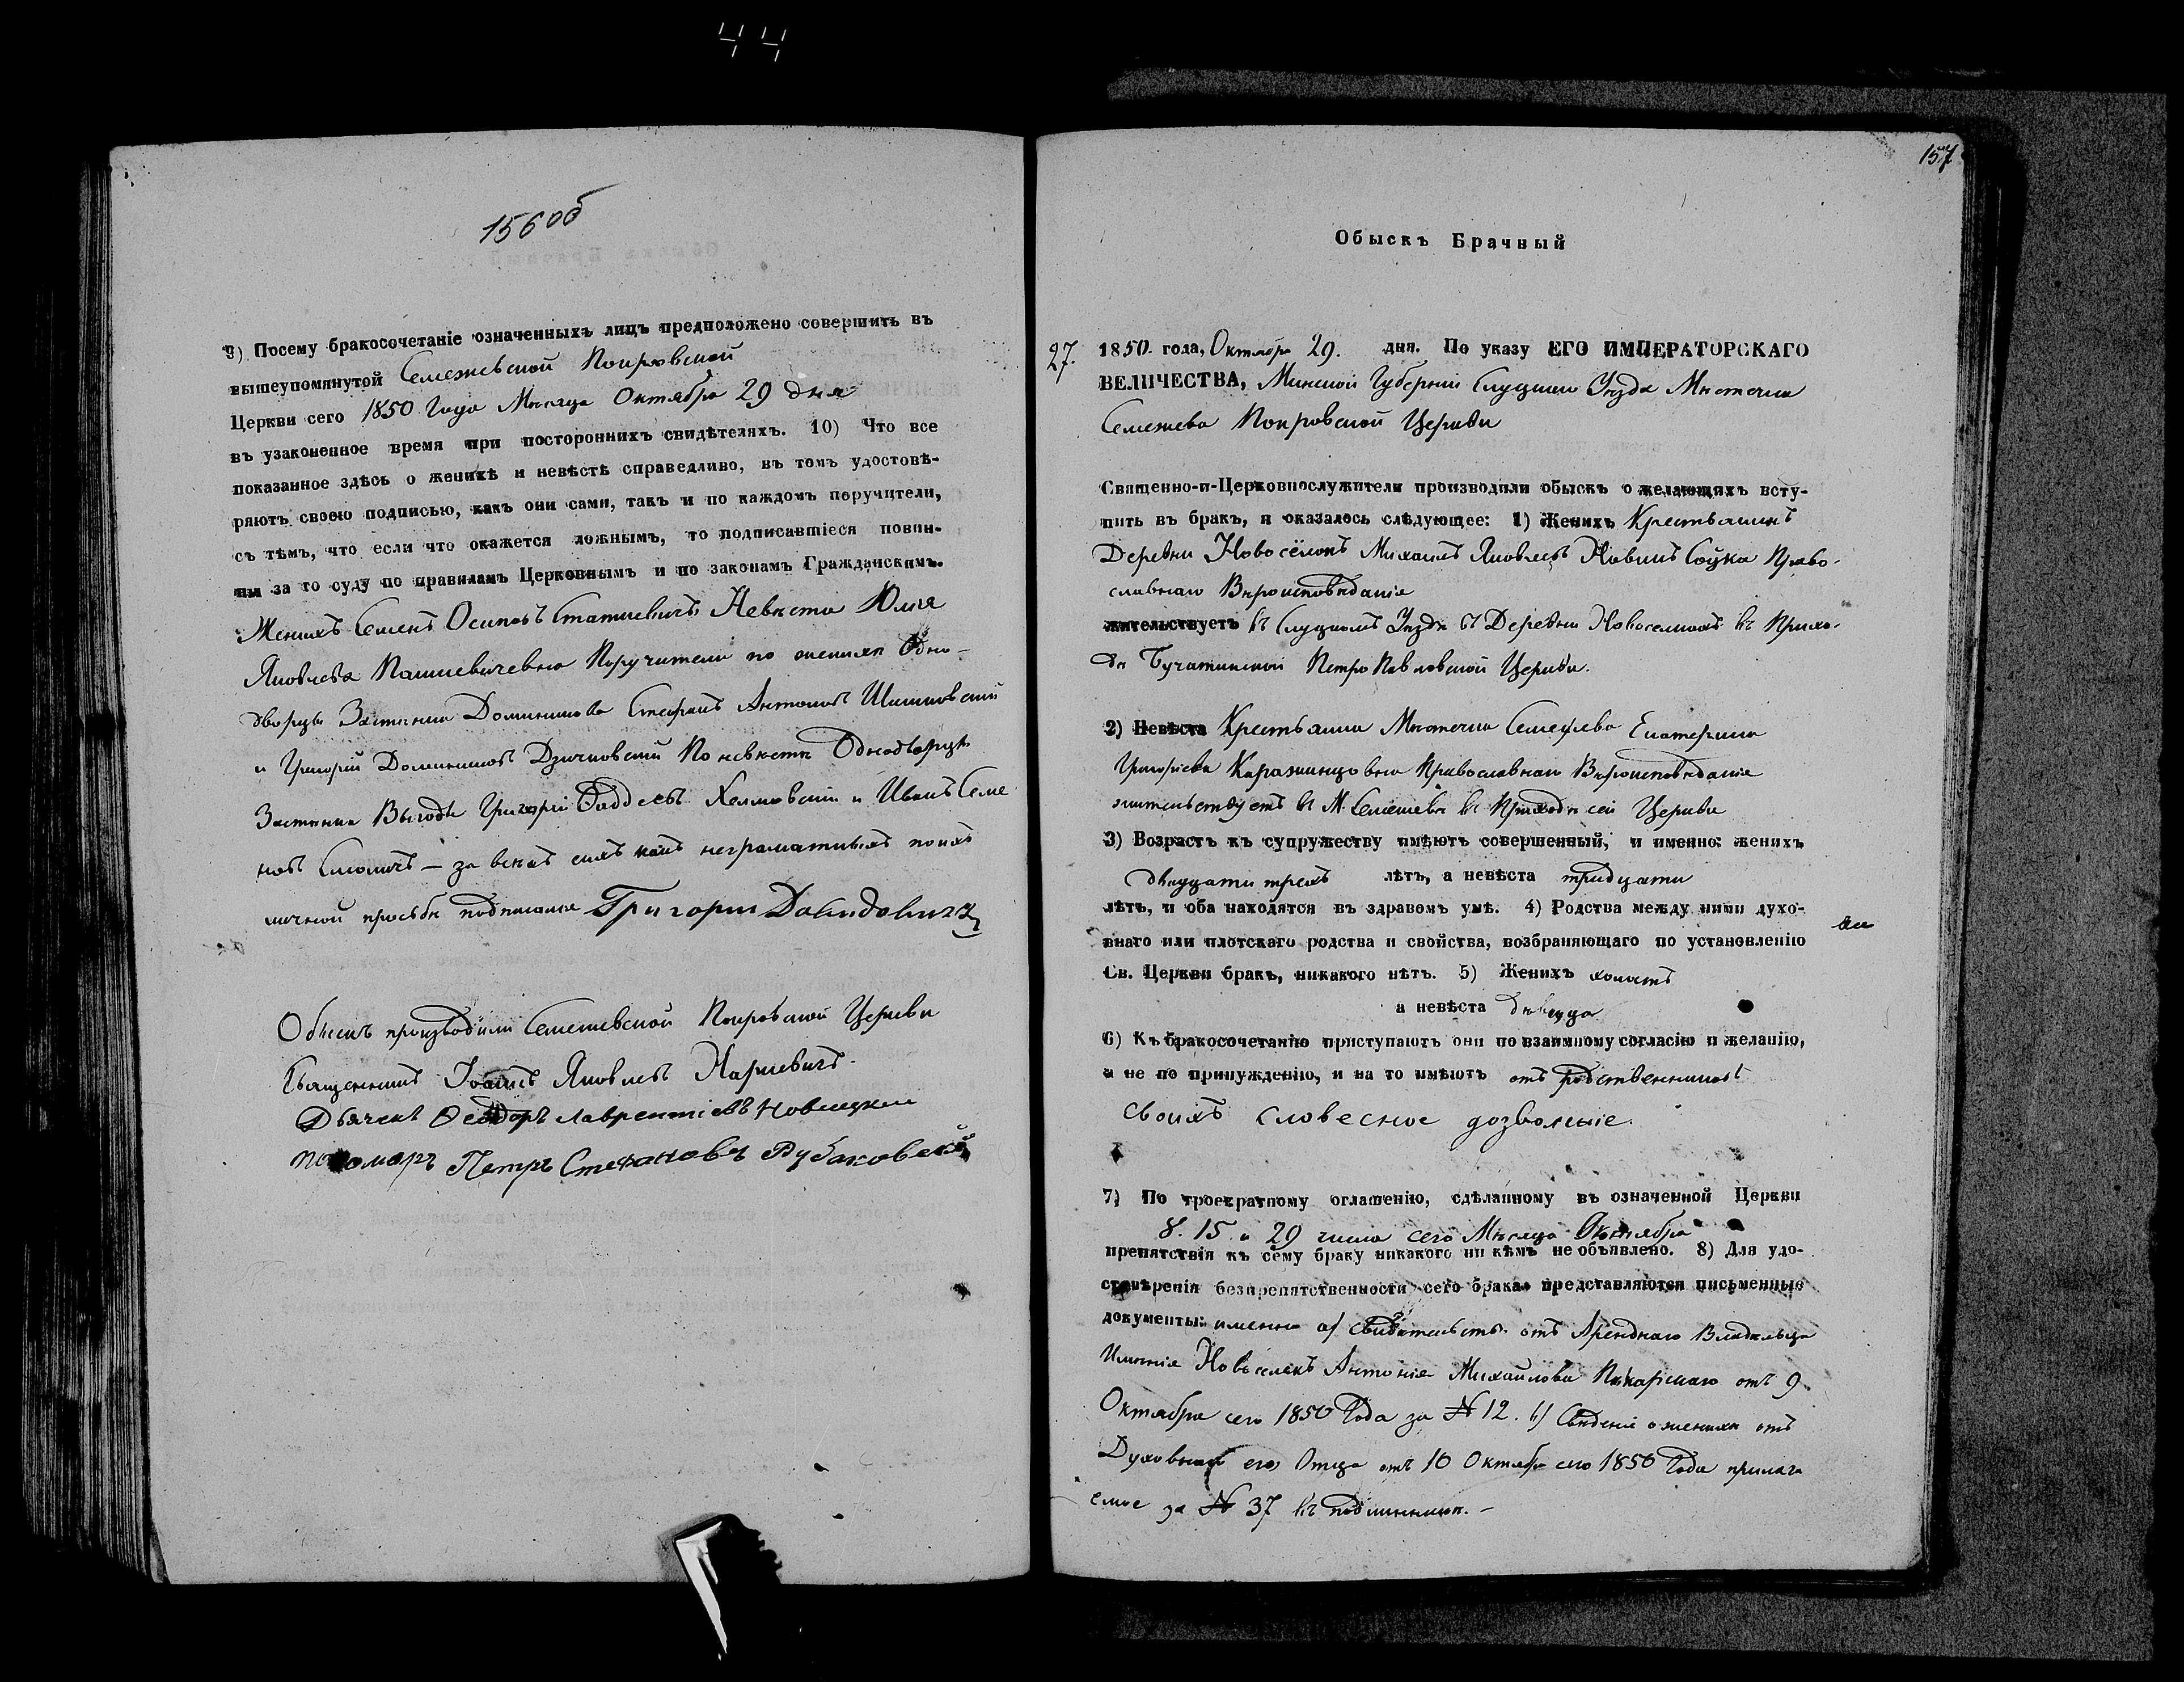 44
156об
9) Посему бракосочетаніе означенныхъ лицъ предположено совершить въ
вышеупомянутой Семежевской Покровской
Церкви сего 1850 Года Мѣсяца Октября 29 дня
въ узаконенное время при постороннихъ свидѣтеляхъ. 10) Что все
показанное здѣсь о женихѣ и невѣстѣ справедливо, въ томъ удостовѣ-
ряютъ своею подписью, какъ они сами, такъ и по каждомъ поручители,
съ тѣмъ, что если что окажется ложнымъ, то подписавшіеся повин-
ны за то суду по правиламъ Церковнымъ и по законамъ Гражданскимъ.
Женихъ Семенъ Осиповъ Невѣста Юлія
Яковлева Поручители по женихѣ Одно-
дворцы Застѣнка Стефанъ Антоновъ
и Григорій Доминиковъ По невѣстѣ Однодворцы
Застѣнка Выгоды Григорій Фаддеевъ и Иванъ Семе
новъ — за всѣхъ сихъ какъ неграматныхъ по ихъ
личной просьбѣ подписался Григорій Давидовичъ
Обыскъ производили Семежевской Покровской Церкви
Священникъ Іоаннъ Яковлевъ
Дьячекъ Ѳеодоръ Лаврентіевъ Новицкій
пономарь Петръ Стефановъ Рубановскій
157
Обыскъ Брачный
27.
1850. года, Октября 29. дня. По указу ЕГО ИМПЕРАТОРСКАГО
ВЕЛИЧЕСТВА, Минской Губерніи Слуцкаго Уѣзда Мѣстечка
Семежева Покровской Церкви
Священно-и-Церковнослужители производили обыскъ о желающихъ всту-
пить въ бракъ, и оказалось слѣдующее: 1) Женихъ Крестьянинъ
Деревни Новосёлокъ Михаилъ Яковлевъ Право-
славнаго Вѣроисповѣданія
жительствуетъ въ Слуцкомъ Уѣздѣ въ Деревни Новоселкахъ въ Прихо-
дѣ Бучатинской Петро Павловской Церкви.
2) Невѣста Крестьянка Мѣстечка Семежева Екатерина
Григорьева Православнаго Вѣроисповѣданія
жительствуетъ въ М. Семежевѣ въ Приходѣ сей Церкви
3) Возрастъ къ супружеству имѣютъ совершенный, и именно: женихъ
двадцати трехъ лѣтъ, а невѣста тридцати
лѣтъ, и оба находятся въ здравомъ умѣ. 4) Родства между ними духо-
внаго или плотскаго родства и свойства, возбраняющаго по установленію
Св. Церкви бракъ, никакого нѣтъ. 5) Женихъ холостъ
а невѣста дѣвица
6) Къ бракосочетанію приступаютъ они по взаимному согласію и желанію,
а не по принужденію, и на то имѣютъ отъ родственниковъ
своихъ словесное дозволеніе.
7) По троекратному оглашенію, сдѣланному въ означенной Церкви
8. 15. и 29 числа сего Мѣсяца Октября
препятствія къ сему браку никакого ни кѣмъ не объявлено. 8) Для удо-
стовѣренія безпрепятственности сего брака представляются письменные
документы: именно а) свидѣтельство отъ Аренднаго Владѣльца
Имѣнія Новоселокъ Антонія Михайлова отъ 9
Октября сего 1850 Года за № 12. б) Свѣденіе о женихѣ отъ
Духовнаго его Отца отъ 10 Октября сего 1850 Года прилага
емое за № 37 въ подлинникѣ. -